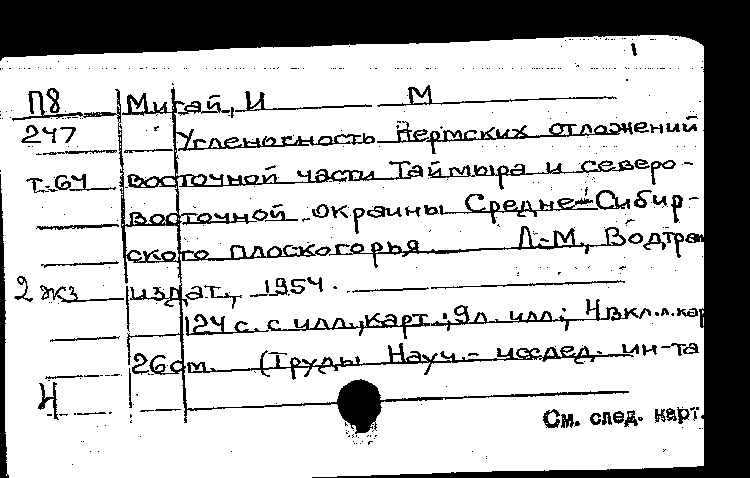 П8 Мигай, И М
247 Угленосность Пермских отложений
т.64 восточной части Таймыра и северо-
восточной окраины Средне-Сибир-
ского плоскогорья Л-М, Водтран
2 экз издат., 1954.
124 с. с илл., карт.; 9л. илл; 4вкл.л.кар
26 см. (Труды Науч.- исслед. ин-та
Н
См. след. карт.